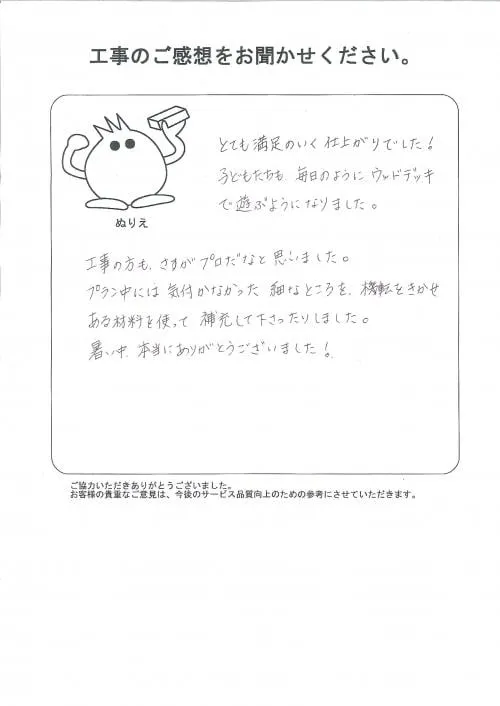 工事のご感想をお聞かせください。
とても満足のいく仕上がりでした!
子どもたちも、毎日のようにウッドデッキ
で遊ぶようになりました。
ぬりえ
工事の方も、さすがプロだなと思いました。
プラン中には気付かなかった細なところを、機転をきかせ
ある材料を使って補充して下さったりしました。
暑い中、本当にありがとうございました!
ご協力いただきありがとうございました。
お客様の貴重なご意見は、今後のサービス品質向上のための参考にさせていただきます。